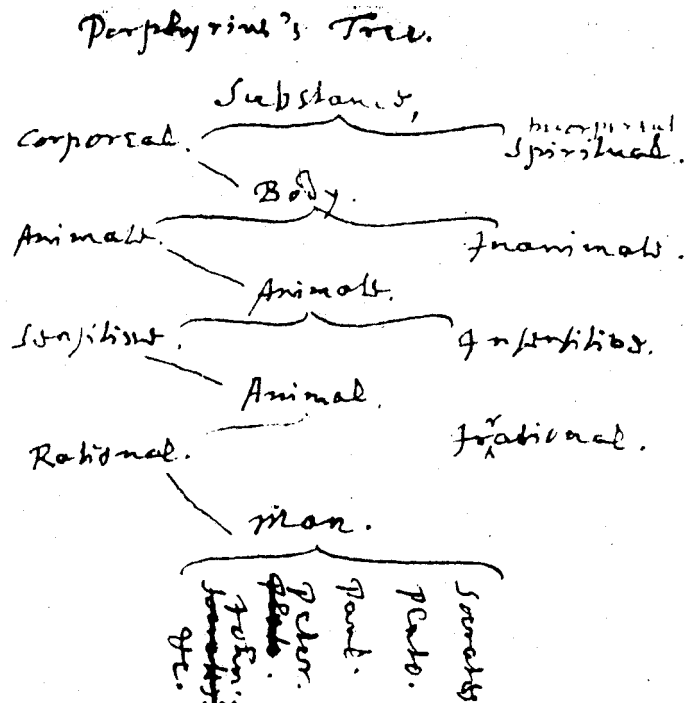 Porphyrius's Tree.
Substance,
Corporeal.
Incorporeal
Spiritual.
Body.
Animate.
Inanimate.
Animate.
Sensitive.
Insensitive.
Animal.
Rational.
Irrational.
Man.
Socrates
Plato.
Paul.
Peter.
Plato.
John.
Socrates
&c.